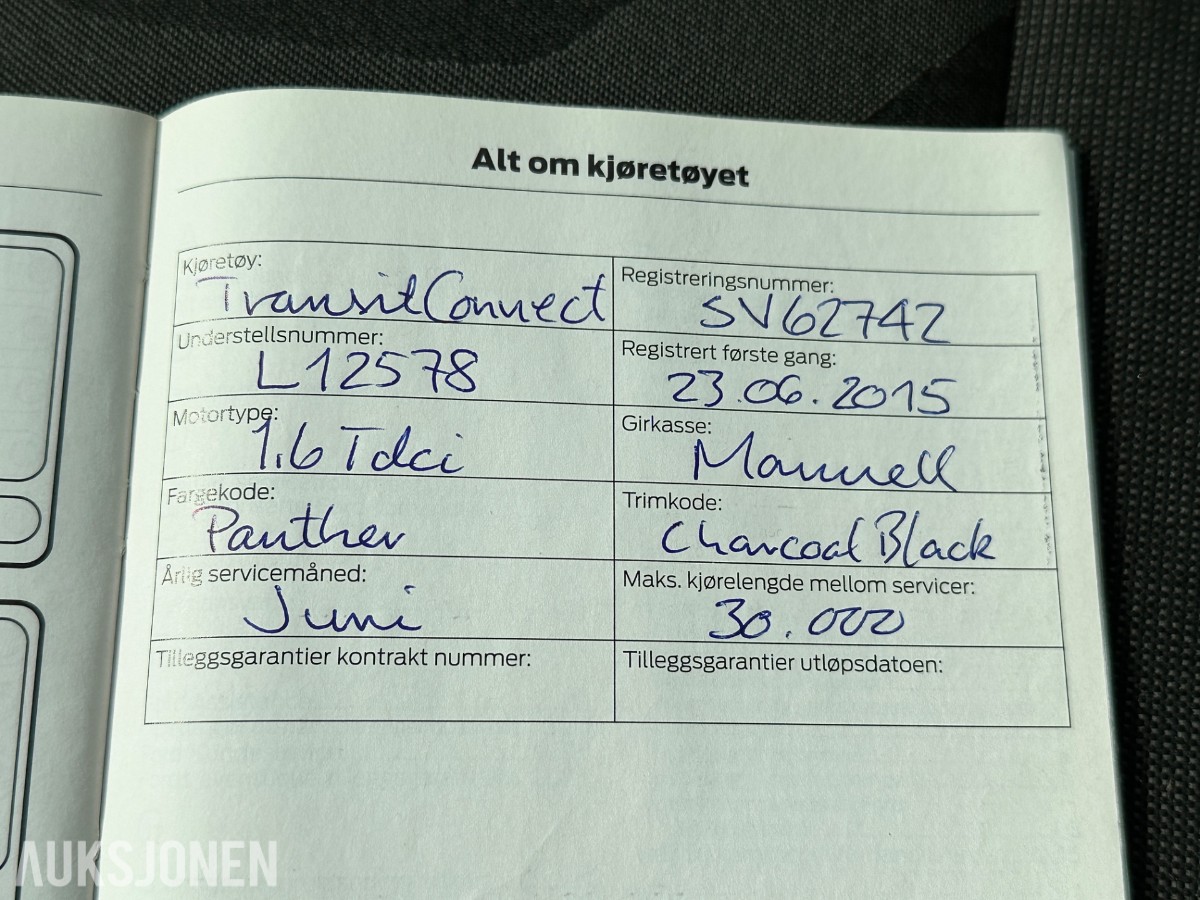 Alt om kjøretøyet
Kjøretøy:
Transit Connect
Registreringsnummer:
SV62742
Understellsnummer:
L12578
Registrert første gang:
23.06.2015
Motortype:
1.6 Tdci
Girkasse:
Manuell
Fargekode:
Panther
Trimkode:
Charcoal Black
Årlig servicemåned:
Juni
Maks. kjørelengde mellom servicer:
30.000
Tilleggsgarantier kontrakt nummer:
Tilleggsgarantier utløpsdatoen:
AUKSJONEN